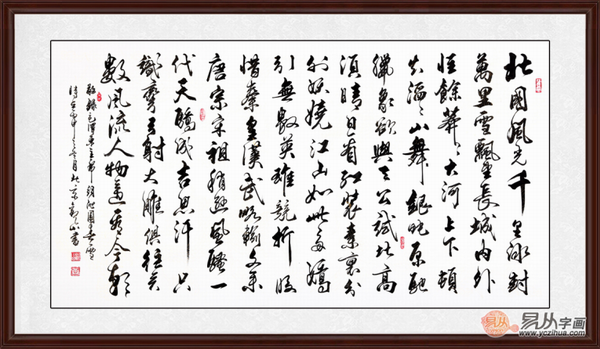 北國風光千里冰封
萬里雪飄望長城内外
惟餘莽々大河上下頓
失滔々山舞銀蛇原馳
臘象欲與天公試比高
須晴日看紅裝素裹分
外妖嬈江山如此多嬌
引無數英雄競折腰
惜秦皇漢武略輸文采
唐宗宋祖稍遜風騷一
代天驕成吉思汗只
識彎弓射大雕俱往矣
數風流人物還看今朝
敬錄毛澤東主席詞沁園春雪
北京 山書
易从字画
www.yczihua.com